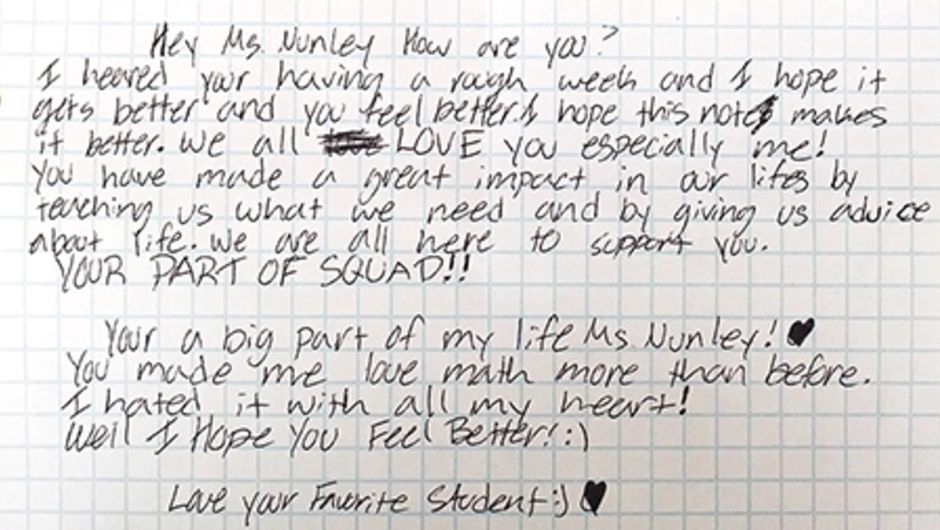 Hey Ms. Nunley How are you?
I heared your having a rough week and I hope it
gets better and you feel better. I hope this note makes
it better. We all LOVE you especially me!
You have made a great impact in our lifes by
teaching us what we need and by giving us advice
about life. We are all here to support you.
YOUR PART OF SQUAD!!
Your a big part of my life Ms. Nunley! ♥
You made me love math more than before.
I hated it with all my heart!
Well I Hope You Feel Better! :)
Love your Favorite Student :) ♥